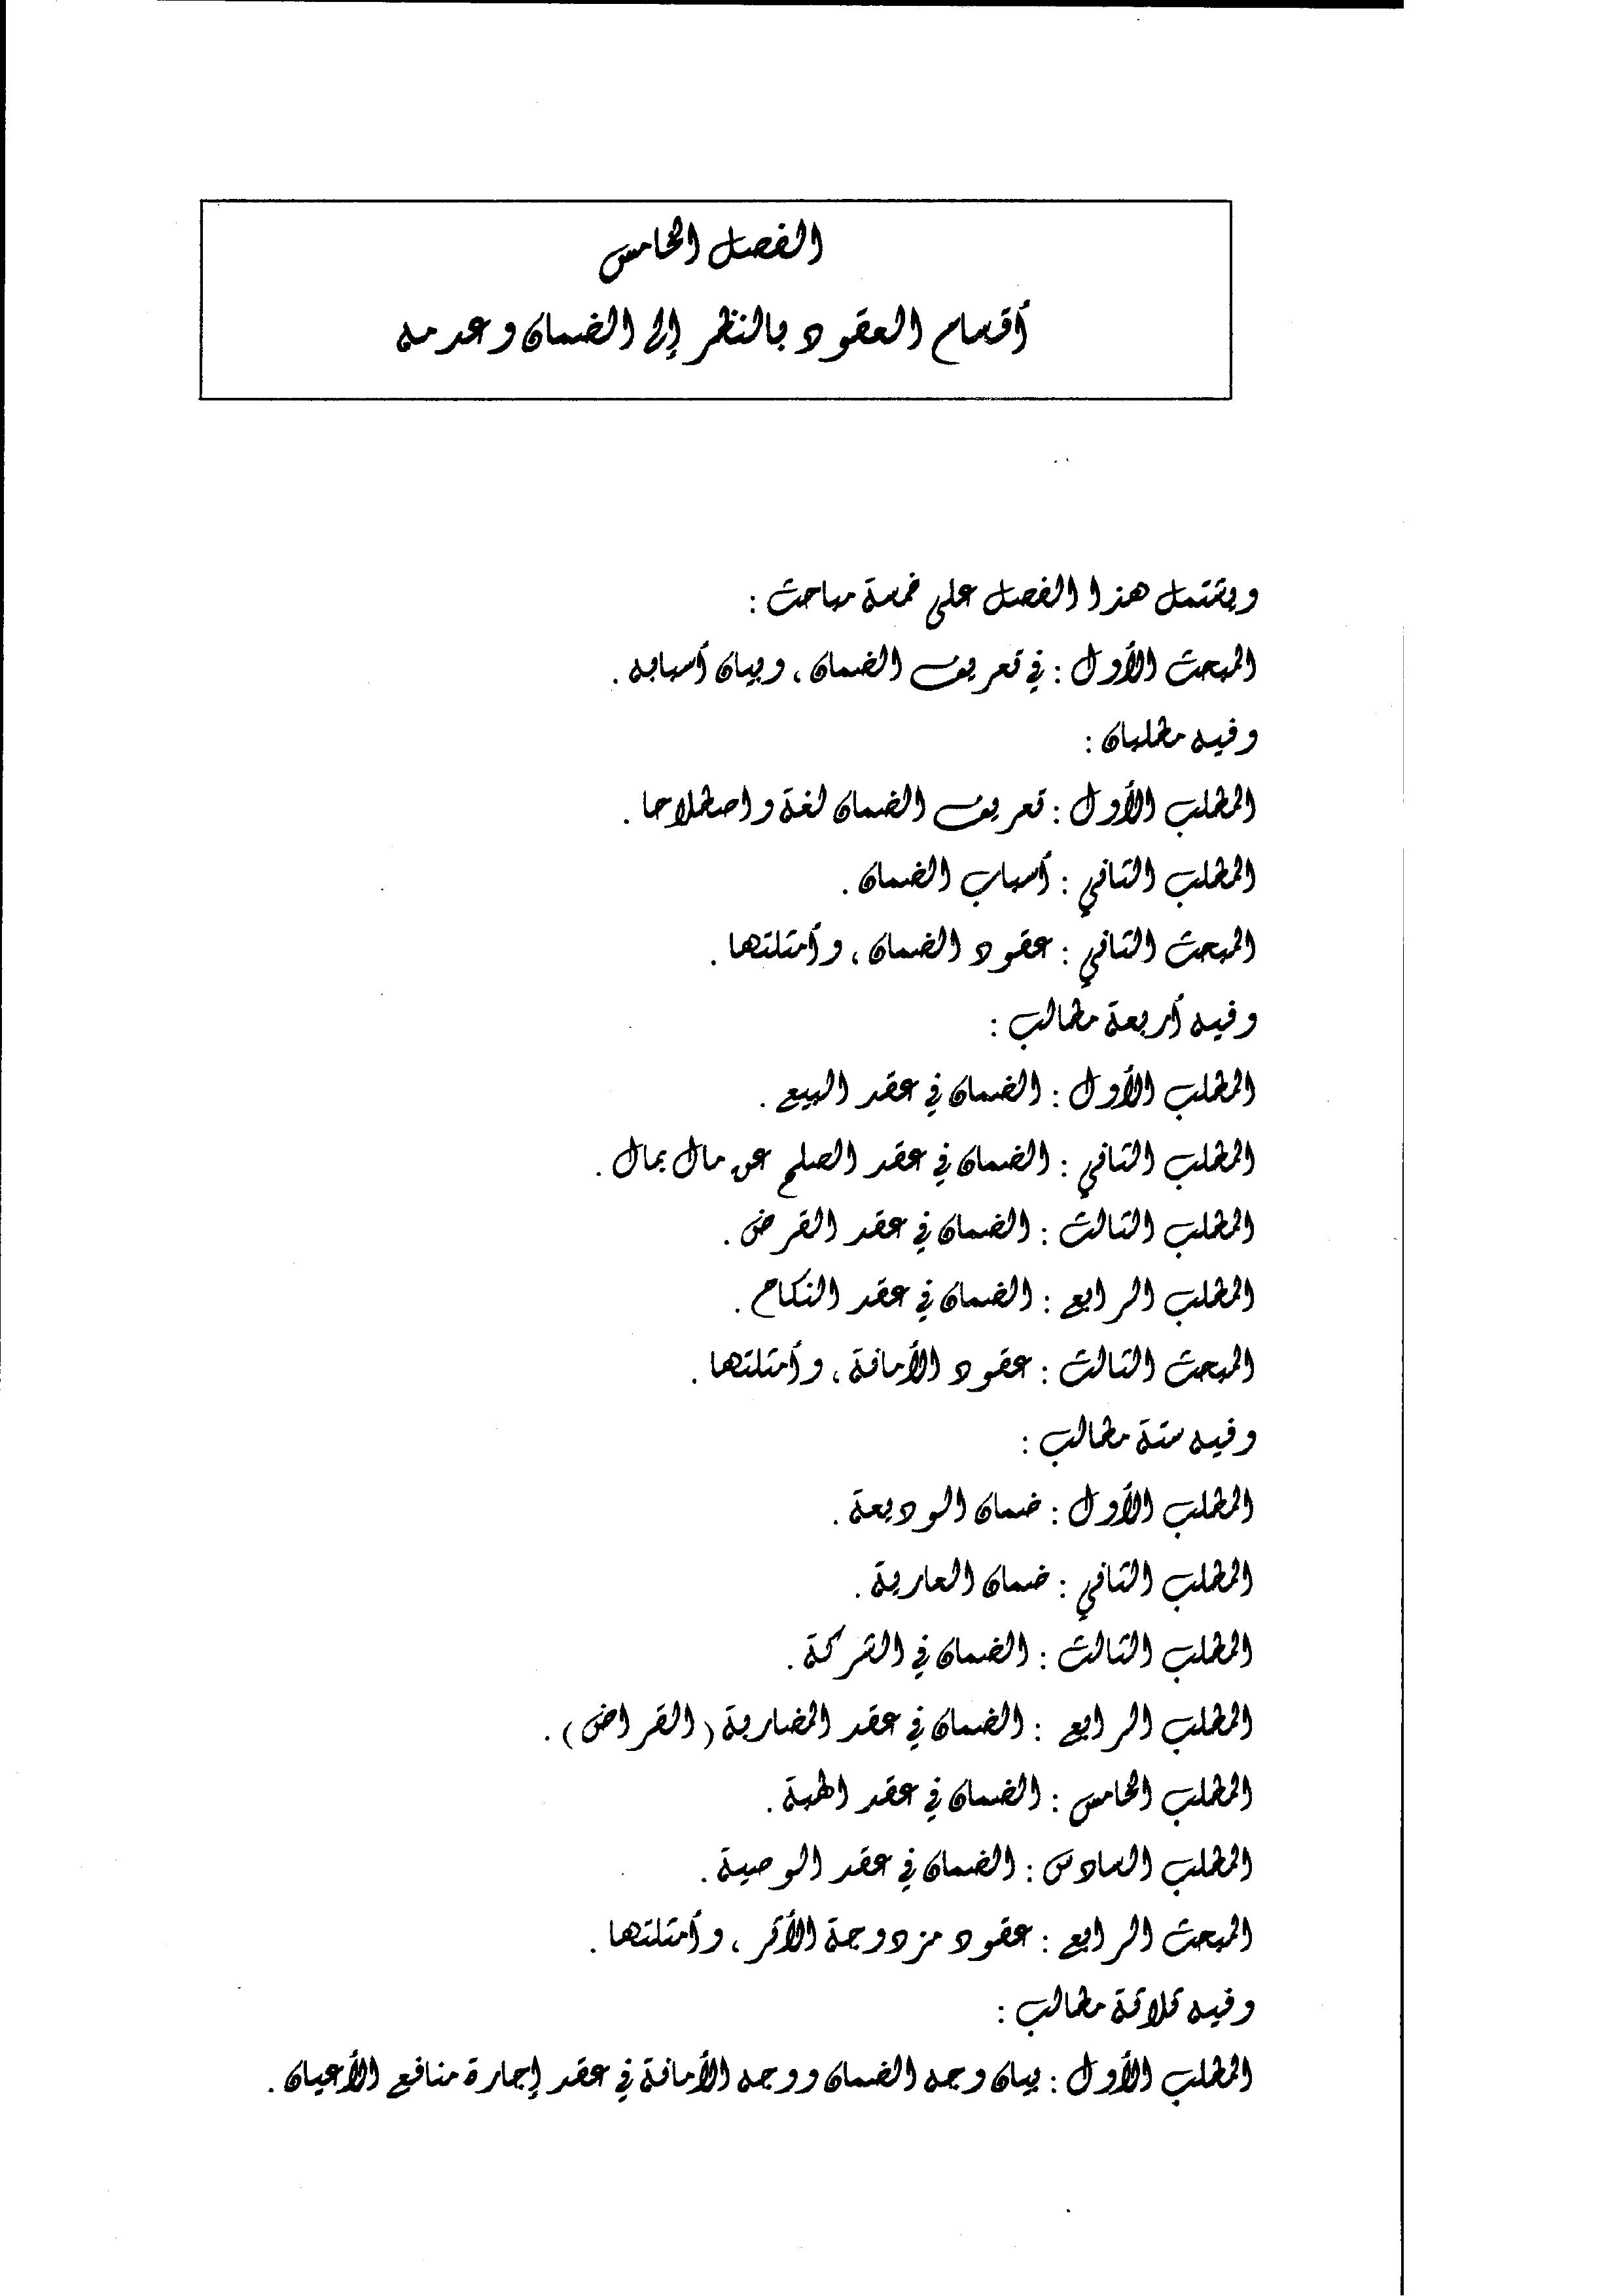 الفصل الخامس
أقسام العقود بالنظر إلى الضمان وعدمه
ويشتمل هذا الفصل على خمسة مباحث :
المبحث الأول : في تعريف الضمان ، وبيان أسبابه .
وفيه مطلبان :
المطلب الأول : تعريف الضمان لغة واصطلاحا .
المطلب الثاني : أسباب الضمان .
المبحث الثاني : عقود الضمان ، وأمثلتها .
وفيه أربعة مطالب :
المطلب الأول : الضمان في عقد البيع .
المطلب الثاني : الضمان في عقد الصلح عن مال بمال .
المطلب الثالث : الضمان في عقد القرض .
المطلب الرابع : الضمان في عقد النكاح .
المبحث الثالث : عقود الأمانة ، وأمثلتها .
وفيه ستة مطالب :
المطلب الأول : ضمان الوديعة .
المطلب الثاني : ضمان العارية .
المطلب الثالث : الضمان في الشركة .
المطلب الرابع : الضمان في عقد المضاربة ( القراض ) .
المطلب الخامس : الضمان في عقد الهبة .
المطلب السادس : الضمان في عقد الوصية .
المبحث الرابع : عقود مزدوجة الأثر ، وأمثلتها .
وفيه ثلاثة مطالب :
المطلب الأول : بيان وجه الضمان ووجه الأمانة في عقد إجارة منافع الأعيان .